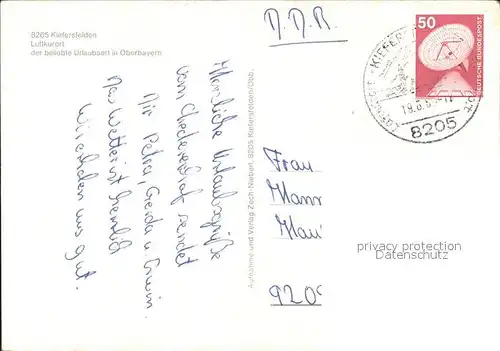 8205 Kiefersfelden
Luftkurort
der beliebte Urlaubsort in Oberbayern
D.D.R.
50
DEUTSCHE BUNDESPOST
KIEFERS
8205
Herzliche Urlaubsgrüße
vom sendet
Dir Petra, Gerda u. Erwin.
Das Wetter ist herrlich
Wir erholen uns gut.
Aufnahme und Verlag Zech-Nieberl, 8205 Kiefersfelden/Obb.
Frau
Mann
Hau
privacy protection
Datenschutz
9209